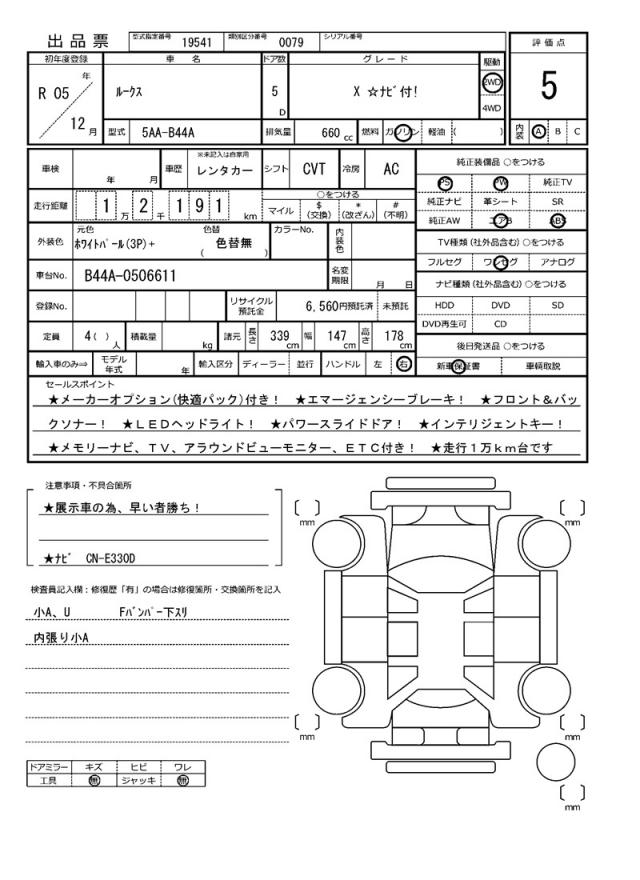 出品票 型式指定番号 19541 類別区分番号 0079 シリアル番号
初年度登録 車名 ドア数 グレード 駆動 評価点
R 05 年 12 月 ルークス 5 D X ☆ナビ付! 2WD 4WD 5
型式 5AA-B44A 排気量 660 cc 燃料 ガソリン 軽油 ( ) 内装 A B C
車検 年 月 車歴 ※未記入は自家用 レンタカー シフト CVT 冷房 AC
走行距離 1 万 2 千 1 9 1 km ○をつける マイル $ (交換) * (改ざん) # (不明)
外装色 元色 ホワイトパール(3P)+ 色替 ( 色替無 ) カラーNo. 内装色
車台No. B44A-0506611 名変期限 月 日
登録No. リサイクル預託金 6,560円預託済 未預託
定員 4( ) 人 積載量 kg 諸元 長さ 339 cm 幅 147 cm 高さ 178 cm
輸入車のみ⇒ モデル年式 年 輸入区分 ディーラー 並行 ハンドル 左 右
純正装備品 ○をつける
PS PW 純正TV
純正ナビ 革シート SR
純正AW エアB ABS
TV種類(社外品含む)○をつける
フルセグ ワンセグ アナログ
ナビ種類(社外品含む)○をつける
HDD DVD SD
DVD再生可 CD
後日発送品 ○をつける
新車保証書 車輌取説
セールスポイント
★メーカーオプション(快適パック)付き! ★エマージェンシーブレーキ! ★フロント&バッ
クソナー! ★LEDヘッドライト! ★パワースライドドア! ★インテリジェントキー!
★メモリーナビ、TV、アラウンドビューモニター、ETC付き! ★走行1万km台です
注意事項・不具合箇所
★展示車の為、早い者勝ち!
★ナビ CN-E330D
検査員記入欄:修復歴「有」の場合は修復箇所・交換箇所を記入
小A、U Fバンパー下スリ
内張り小A
ドアミラー キズ ヒビ ワレ
工具 無 ジャッキ 無
[ ] mm [ ] mm
[ ] mm [ ] mm
[ ] mm